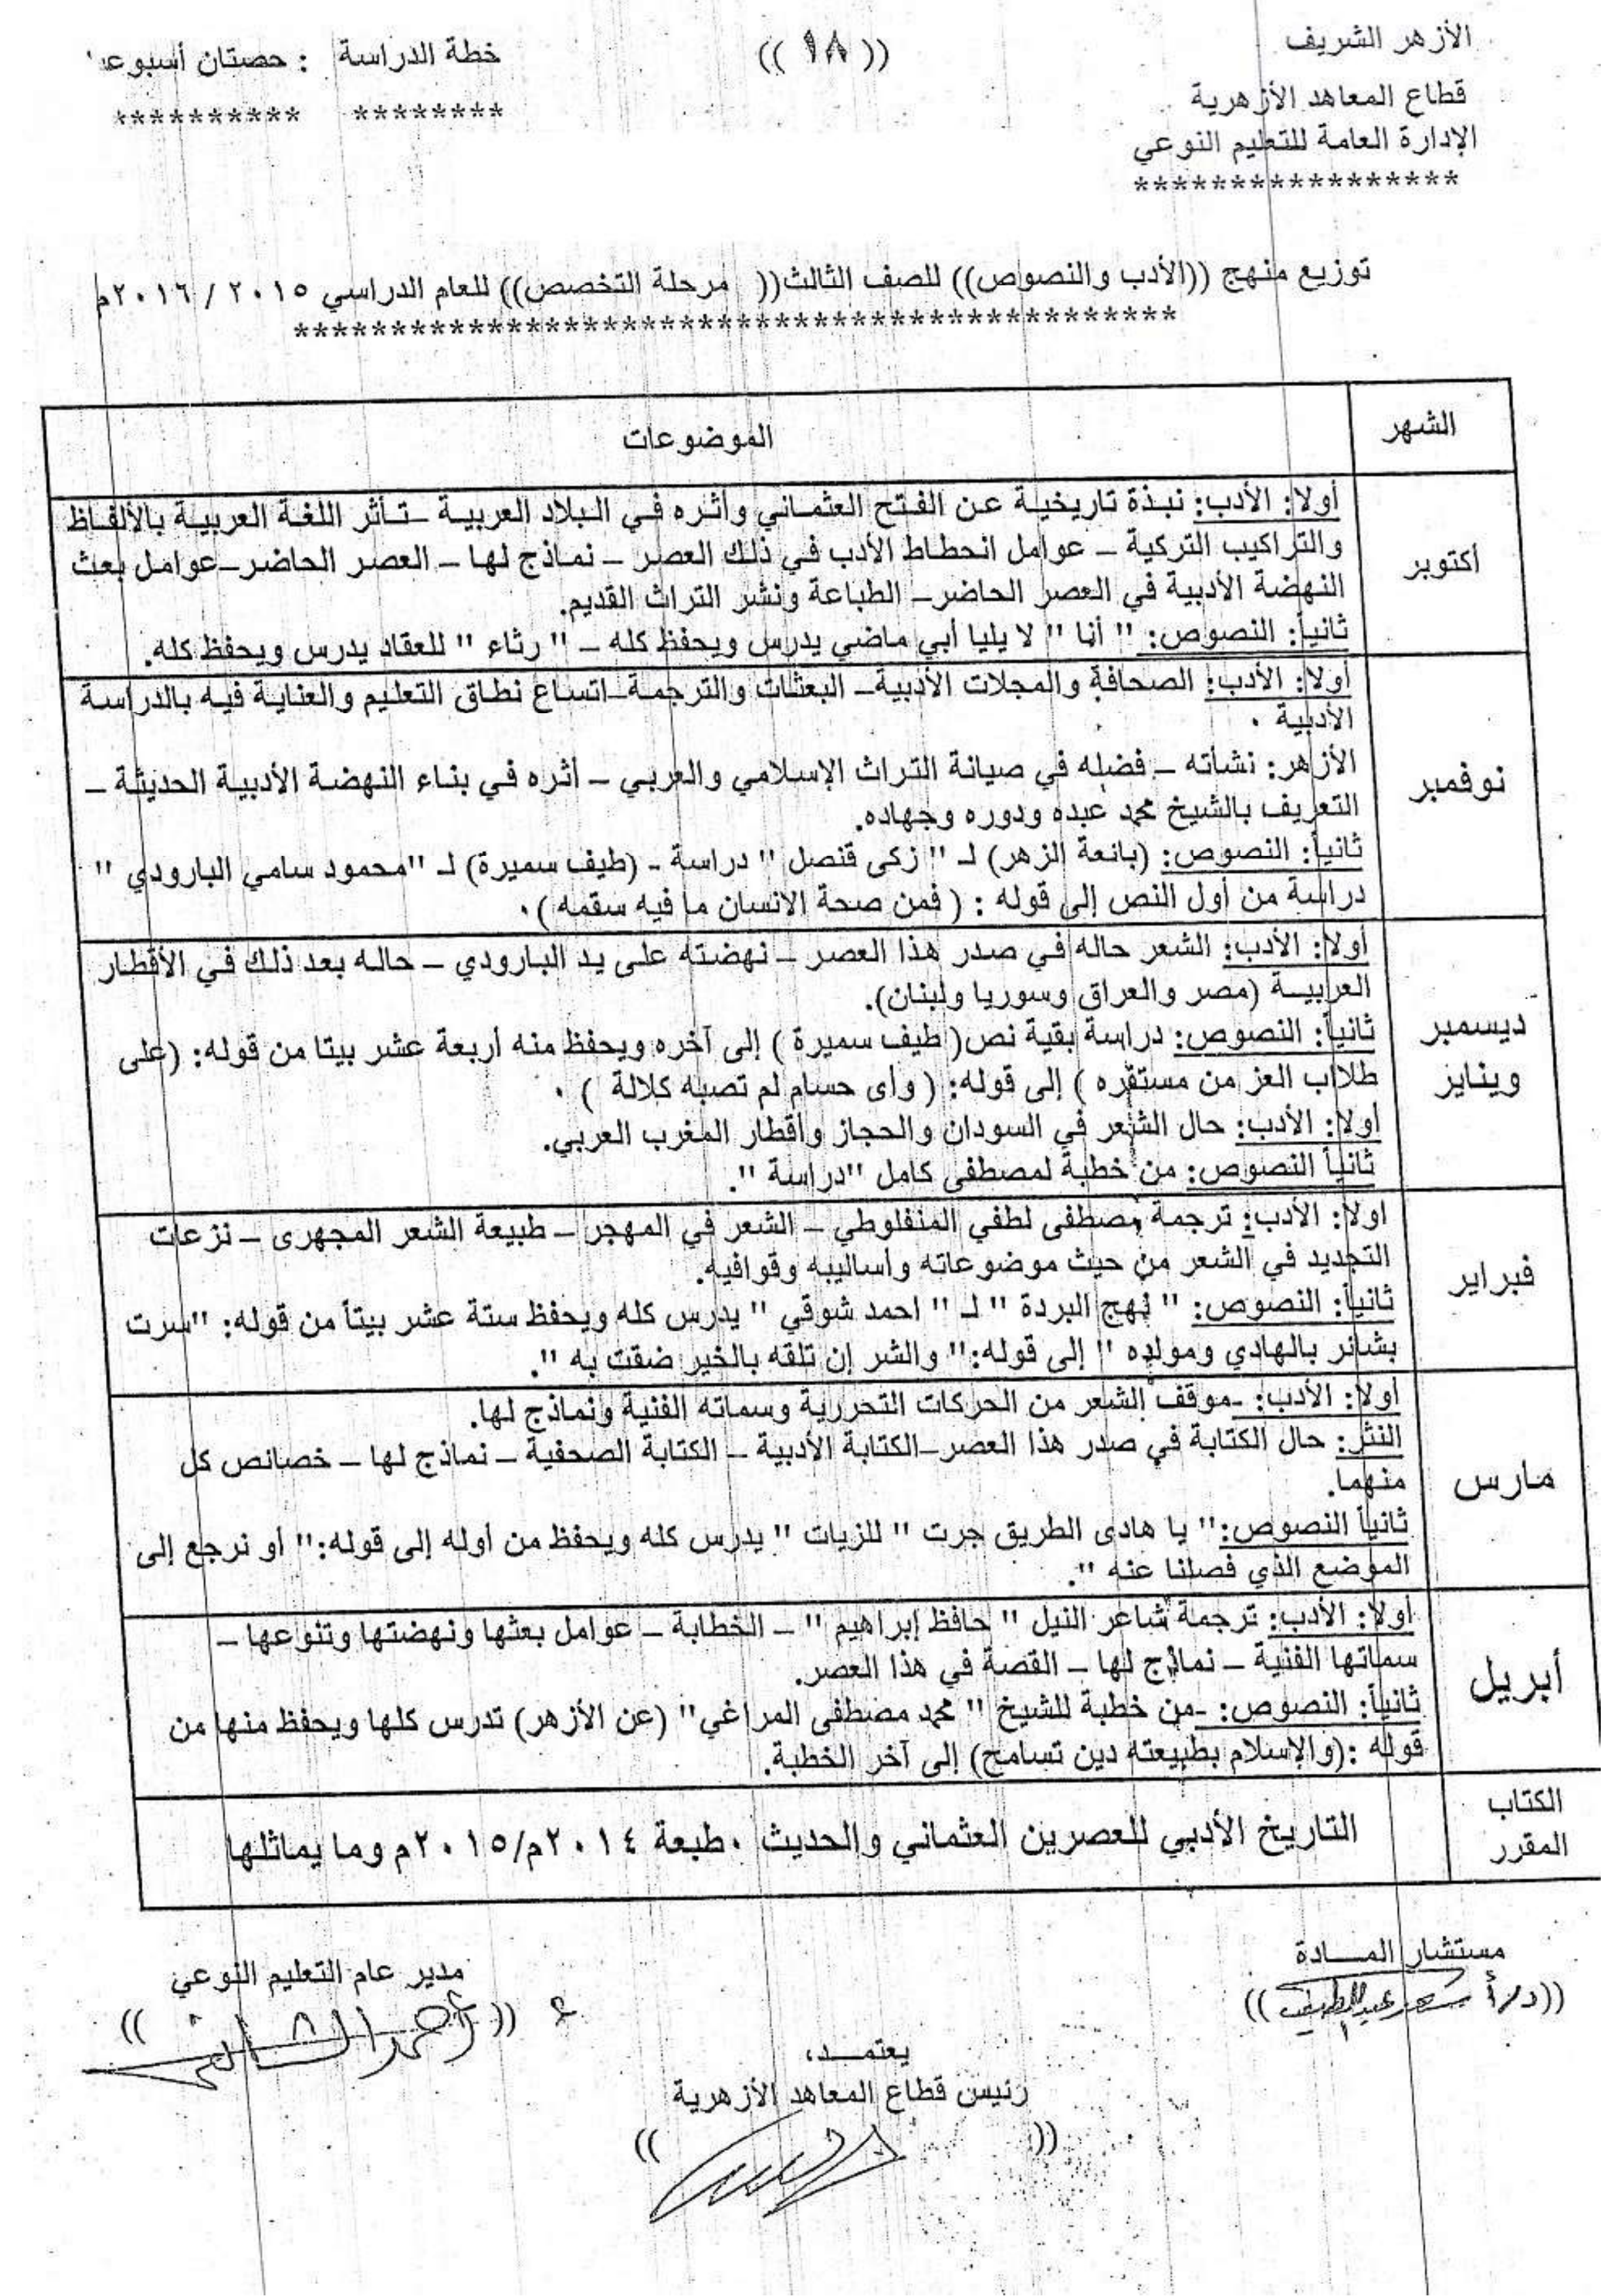 الأزهر الشريف
قطاع المعاهد الأزهرية
الإدارة العامة للتعليم النوعي
*****************
((١٨))
خطة الدراسة : حصتان أسبوعي
******** **********
توزيع منهج ((الأدب والنصوص)) للصف الثالث(( مرحلة التخصص)) للعام الدراسي ٢٠١٥ / ٢٠١٦م
********************************************
الشهر
الموضوعات
أكتوبر
أولا: الأدب: نبذة تاريخية عن الفتح العثماني وأثره في البلاد العربية –تأثر اللغة العربية بالألفاظ
والتراكيب التركية – عوامل انحطاط الأدب في ذلك العصر – نماذج لها – العصر الحاضر–عوامل بعث
النهضة الأدبية في العصر الحاضر– الطباعة ونشر التراث القديم.
ثانياً: النصوص: " أنا " لا يليا أبي ماضي يدرس ويحفظ كله – " رثاء " للعقاد يدرس ويحفظ كله.
نوفمبر
أولا: الأدب: الصحافة والمجلات الأدبية– البعثات والترجمة–اتساع نطاق التعليم والعناية فيه بالدراسة
الأدبية .
الأزهر: نشأته – فضله في صيانة التراث الإسلامي والعربي – أثره في بناء النهضة الأدبية الحديثة –
التعريف بالشيخ محمد عبده ودوره وجهاده.
ثانياً: النصوص: (بانعة الزهر) لـ " زكى قنصل " دراسة - (طيف سميرة) لـ "محمود سامي البارودي "
دراسة من أول النص إلى قوله : ( فمن صحة الانسان ما فيه سقمه ) .
ديسمبر
ويناير
أولا: الأدب: الشعر حاله في صدر هذا العصر – نهضته على يد البارودي – حاله بعد ذلك في الأقطار
العربيــة (مصر والعراق وسوريا ولبنان).
ثانياً: النصوص: دراسة بقية نص( طيف سميرة ) إلى آخره ويحفظ منه أربعة عشر بيتا من قوله: (على
طلاب العز من مستقره ) إلى قوله: ( وأى حسام لم تصبه كلالة ) .
أولا: الأدب: حال الشعر في السودان والحجاز وأقطار المغرب العربي.
ثانياً النصوص: من خطبة لمصطفى كامل "دراسة ".
فبراير
اولا: الأدب: ترجمة مصطفى لطفي المنفلوطي – الشعر في المهجر – طبيعة الشعر المجهرى – نزعات
التجديد في الشعر من حيث موضوعاته وأساليبه وقوافيه.
ثانياً: النصوص: " نهج البردة " لـ " احمد شوقي " يدرس كله ويحفظ ستة عشر بيتاً من قوله: "سرت
بشائر بالهادي ومولده " إلى قوله:" والشر إن تلقه بالخير ضقت به ".
مارس
أولا: الأدب: -موقف الشعر من الحركات التحررية وسماته الفنية ونماذج لها.
النثر: حال الكتابة في صدر هذا العصر–الكتابة الأدبية – الكتابة الصحفية – نماذج لها – خصائص كل
منهما.
ثانياً النصوص:" يا هادى الطريق جرت " للزيات " يدرس كله ويحفظ من أوله إلى قوله:" أو نرجع إلى
الموضع الذي فصلنا عنه ".
أبريل
أولا: الأدب: ترجمة شاعر النيل " حافظ إبراهيم " – الخطابة – عوامل بعثها ونهضتها وتنوعها –
سماتها الفنية – نماذج لها – القصة في هذا العصر.
ثانياً: النصوص: -من خطبة للشيخ " محمد مصطفى المراغي" (عن الأزهر) تدرس كلها ويحفظ منها من
قوله :(والإسلام بطبيعته دين تسامح) إلى آخر الخطبة.
الكتاب
المقرر
التاريخ الأدبي للعصرين العثماني والحديث . طبعة ٢٠١٤م/٢٠١٥م وما يماثلها
مستشار المــادة
((د/أ سعد عبد اللطيف))
مدير عام التعليم النوعي
يعتمــد،
رئيس قطاع المعاهد الأزهرية